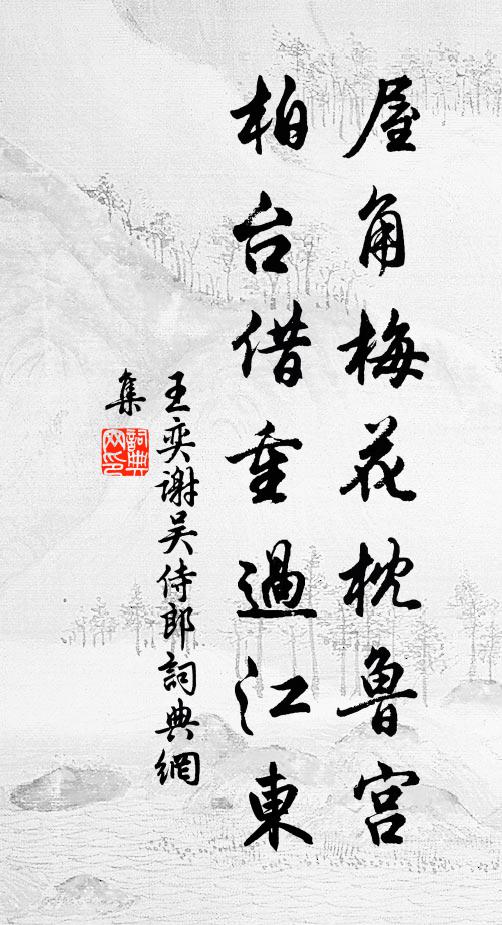 屋角梅花枕鲁宫
柏台借重過江東
王奕谢吴侍郎詞典網
集
詞典
网印